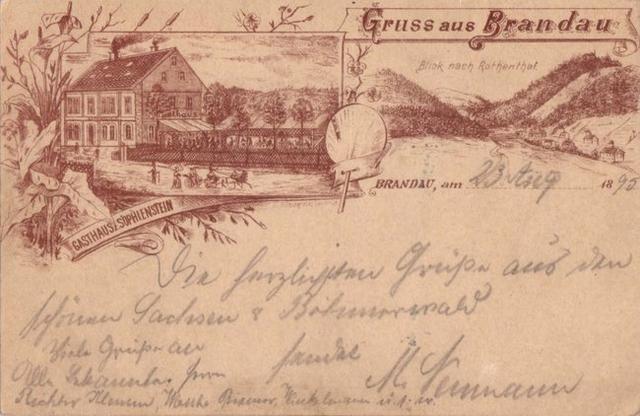 Gruss aus Brandau
Blick nach Rothenthal.
Gasthaus
GASTHAUS z. SOPHIENSTEIN
BRANDAU, am 23 Aug 1895
Die herzlichsten Grüße aus den
schönen Sachsen & Böhmerwald
Viele Grüße an sendet
Alle Bekannte, Herrn M. Neumann
Richter
u. s. w.